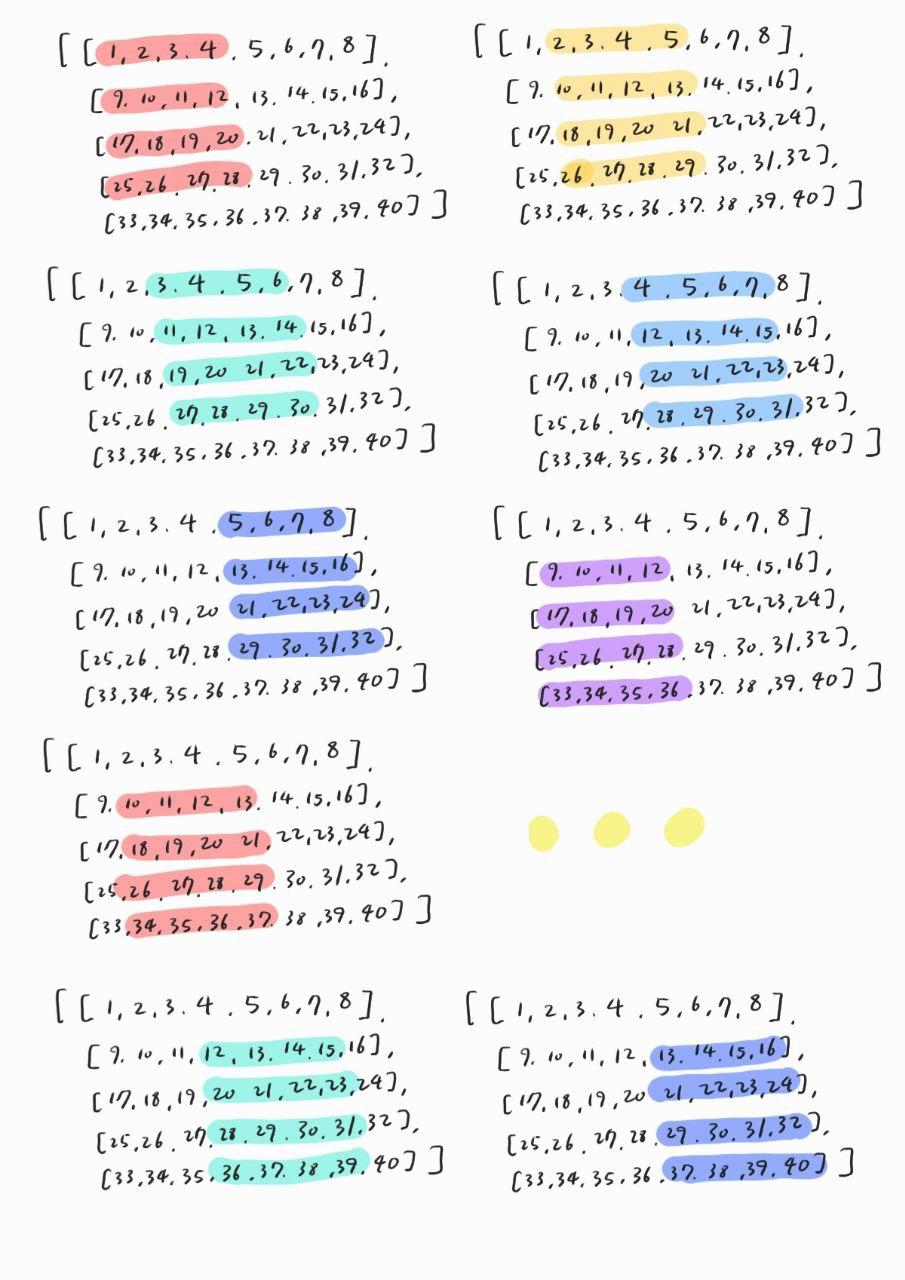 [ [ 1, 2, 3. 4 . 5, 6, 7, 8 ] .
[ 9. 10, 11, 12, 13. 14. 15, 16],
[17, 18, 19, 20 . 21, 22, 23, 24],
[25, 26 . 27. 28 . 29 . 30. 31, 32],
[33, 34. 35, 36 . 37. 38 , 39. 40] ]
[ [ 1, 2, 3. 4 . 5, 6, 7, 8 ] .
[ 9. 10, 11, 12, 13. 14. 15, 16],
[17, 18, 19, 20 21, 22, 23, 24],
[25, 26 . 27. 28 . 29 . 30. 31, 32],
[33, 34. 35, 36 . 37. 38 , 39. 40] ]
[ [ 1, 2, 3. 4 . 5, 6, 7, 8 ] .
[ 9. 10, 11, 12, 13. 14. 15, 16],
[17, 18, 19, 20 21, 22, 23, 24],
[25, 26 . 27. 28 . 29 . 30. 31, 32],
[33, 34. 35, 36 . 37. 38 , 39. 40] ]
[ [ 1, 2, 3. 4 . 5, 6, 7, 8 ] .
[ 9. 10, 11, 12, 13. 14. 15, 16],
[17, 18, 19, 20 21, 22, 23, 24],
[25, 26 . 27. 28 . 29 . 30. 31, 32],
[33, 34. 35, 36 . 37. 38 , 39. 40] ]
[ [ 1, 2, 3. 4 . 5, 6, 7, 8 ] .
[ 9. 10, 11, 12, 13. 14. 15, 16],
[17, 18, 19, 20 21, 22, 23, 24],
[25, 26 . 27. 28 . 29 . 30. 31, 32],
[33, 34. 35, 36 . 37. 38 , 39. 40] ]
[ [ 1, 2, 3. 4 . 5, 6, 7, 8 ] .
[ 9. 10, 11, 12, 13. 14. 15, 16],
[17, 18, 19, 20 21, 22, 23, 24],
[25, 26 . 27. 28 . 29 . 30. 31, 32],
[33, 34. 35, 36 . 37. 38 , 39. 40] ]
[ [ 1, 2, 3. 4 . 5, 6, 7, 8 ] .
[ 9. 10, 11, 12, 13. 14. 15, 16],
[17, 18, 19, 20 21, 22, 23, 24],
[25, 26 . 27. 28 . 29 . 30. 31, 32],
[33, 34. 35, 36 . 37. 38 , 39. 40] ]
[ [ 1, 2, 3. 4 . 5, 6, 7, 8 ] .
[ 9. 10, 11, 12, 13. 14. 15, 16],
[17, 18, 19, 20 21, 22, 23, 24],
[25, 26 . 27. 28 . 29 . 30. 31, 32],
[33, 34. 35, 36 . 37. 38 , 39. 40] ]
[ [ 1, 2, 3. 4 . 5, 6, 7, 8 ] .
[ 9. 10, 11, 12, 13. 14. 15, 16],
[17, 18, 19, 20 21, 22, 23, 24],
[25, 26 . 27. 28 . 29 . 30. 31, 32],
[33, 34. 35, 36 . 37. 38 , 39. 40] ]